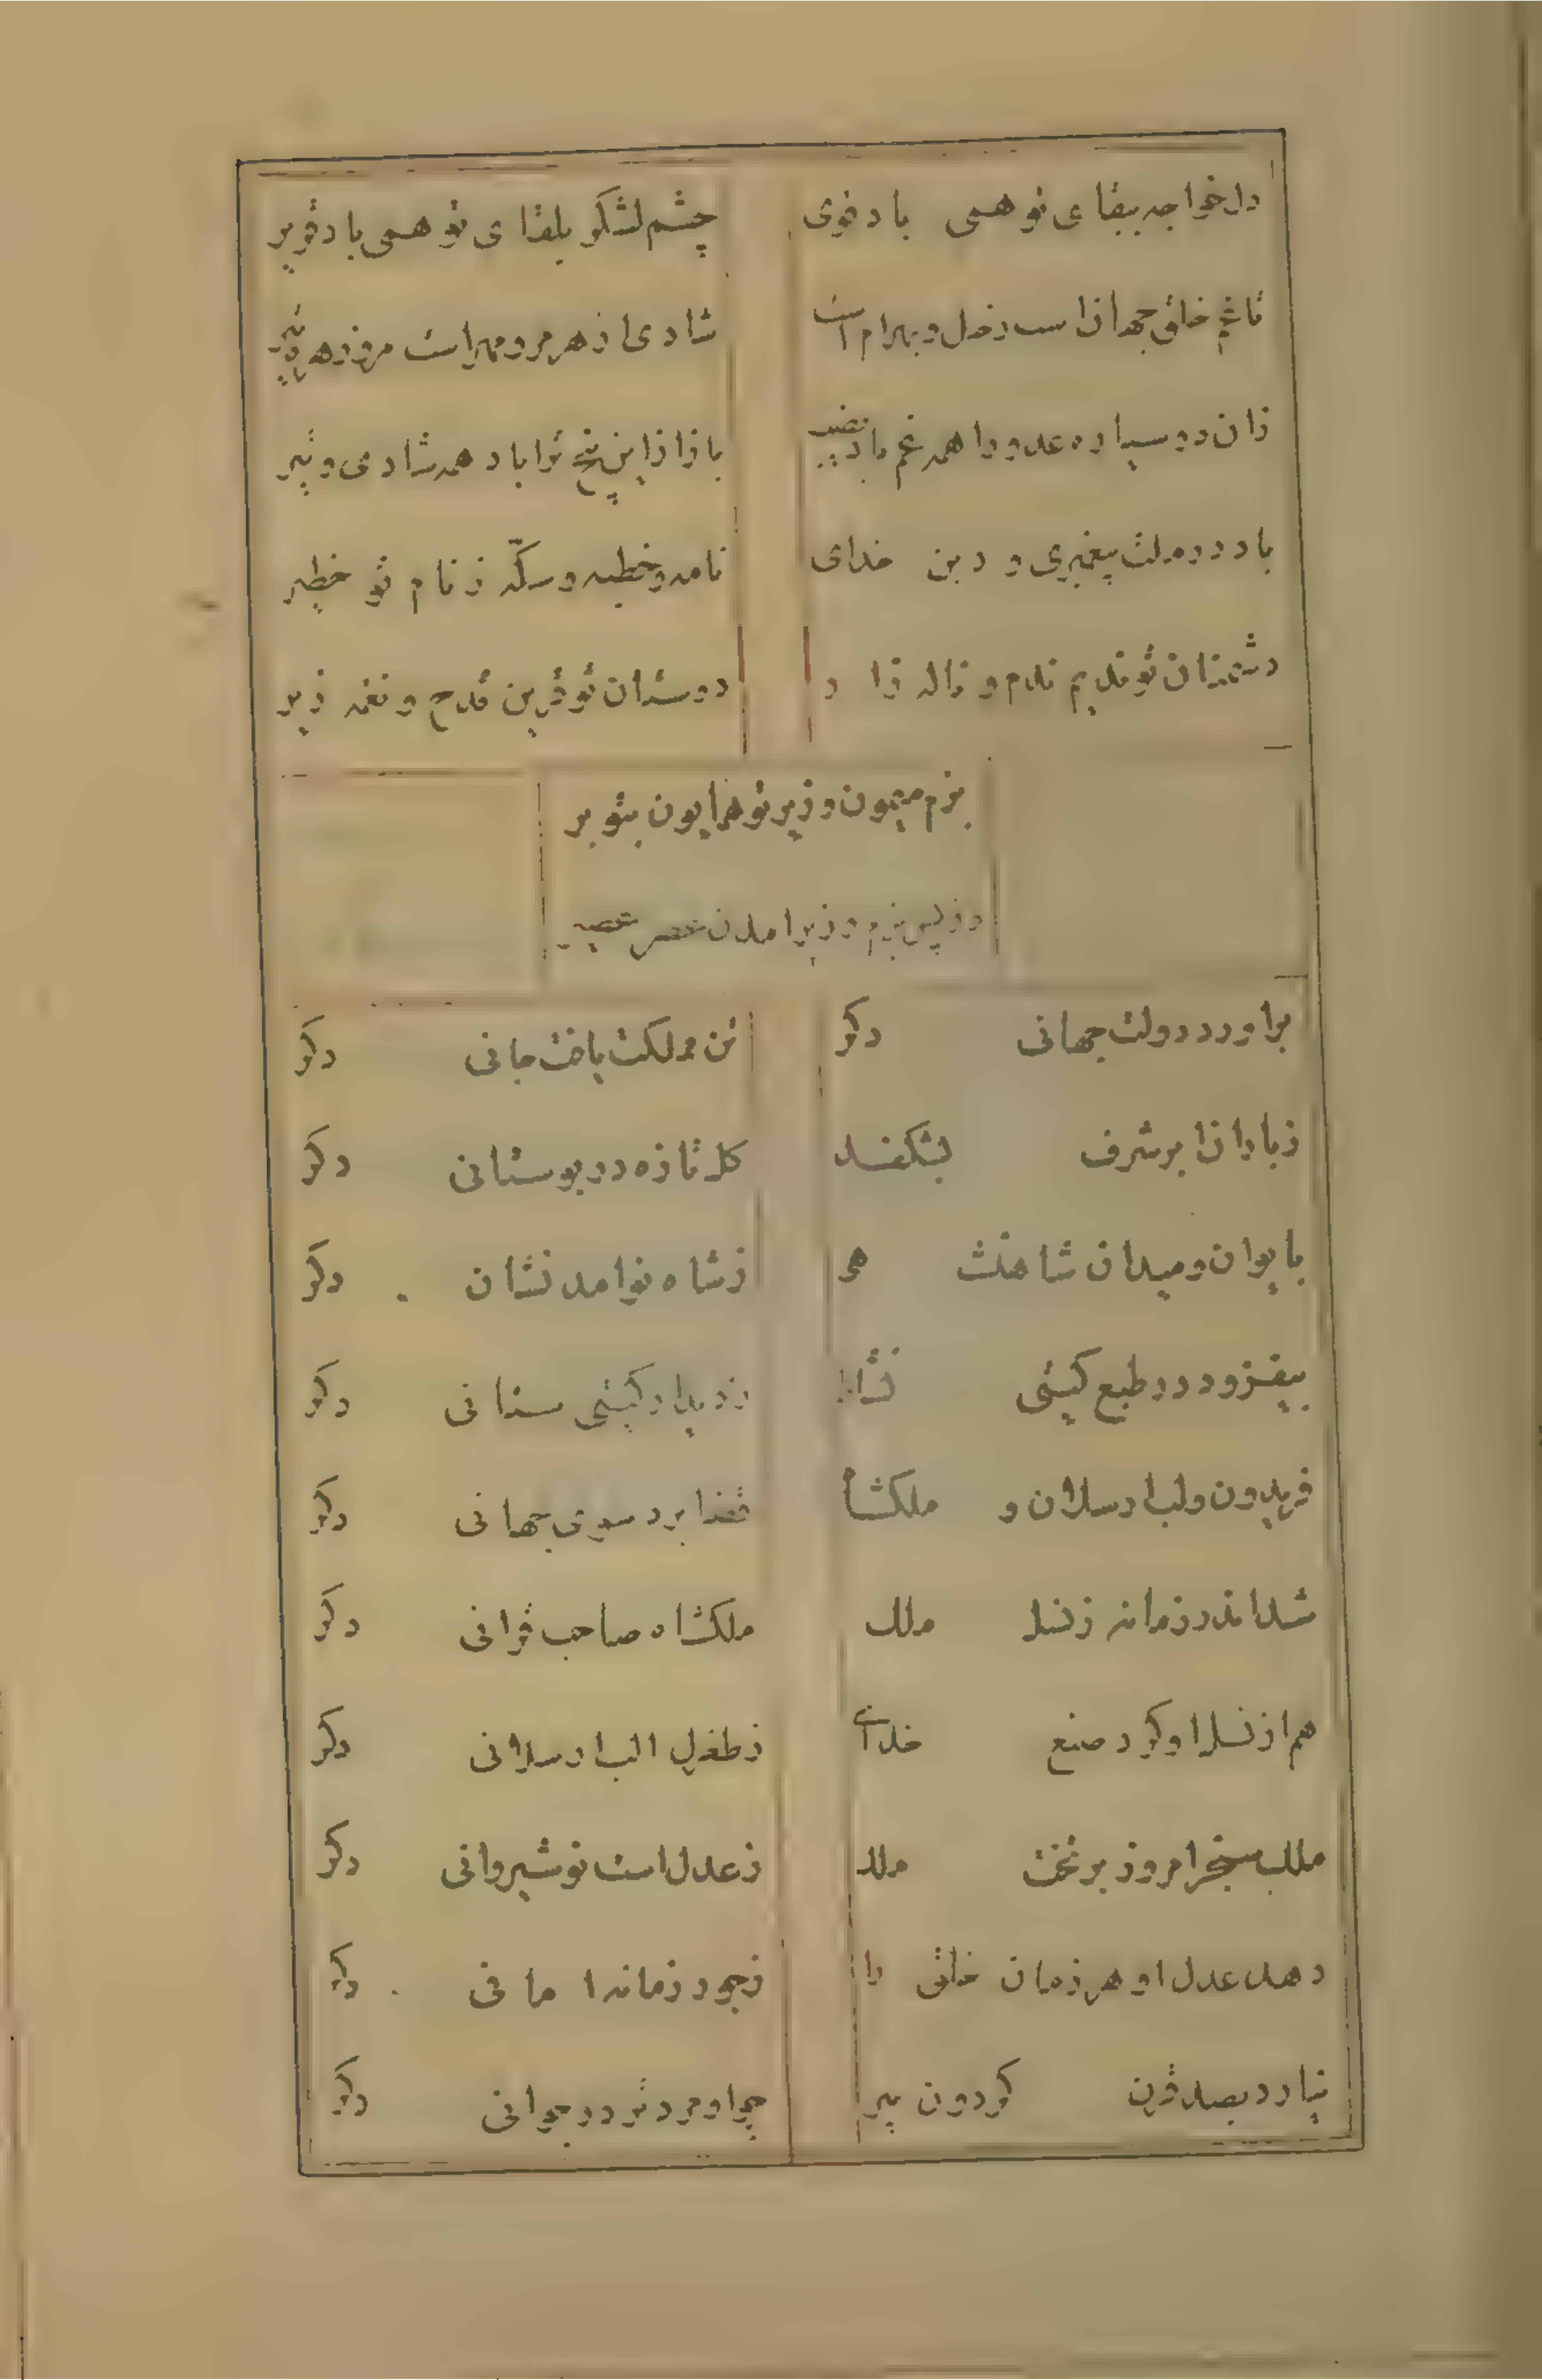 دل خواجه ببقای تو همی باد قوی
چشم لشکر بلقای تو همی باد قریر
تا غم خلق جهان از زحل و بهرام است
شادی از هرمز و مهر است و مه و زهره و تیر
زان دو سیاره عدو را همه غم باد نصیب
باز ازین پنج ترا باد همه شادی و تیر
باد در دولت پیغمبری و دین خدای
نامه و خطبه و سکّه ز نام تو خطیر
دشمنان تو ندیم ندم و ناله زار
دوستان تو قرین قدح و نغمه زیر
بزم میمون وزیر تو همایون بتو بر
وز پس بزم وزیر آمدن عصر عصیر
برآورد دولت جهانی دکر
تن مملکت یافت جانی دکر
ز باران ابر شرف بشکفید
کل تازه در بوستانی دکر
بایوان و میدان شاهنشهی
ز شاه نو آمد نشان دکر
بیفزود در طبع کیتی نشاط
ز دیدار کیتی ستانی دکر
فریدون و الب ارسلان و ملکشاه
قضا برد سوی جهانی دکر
شد اندر زمانه ز نسل ملک
ملکشاه صاحب قرانی دکر
هم از نسل او کرد صنع خدای
ز طغرل الب ارسلانی دکر
ملک سنجر امروز بر تخت ملک
ز عدل است نوشیروانی دکر
دهد عدل او هر زمان خلق را
ز جور زمانه امانی دکر
نیارد بصد قرن کردون پیر
چو او مرد تر در جوانی دکر